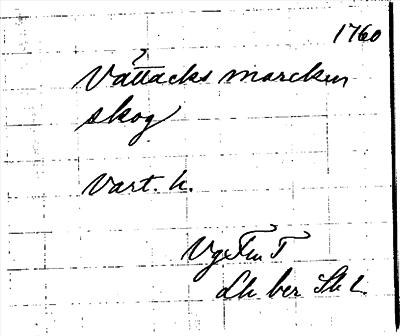 1760
Våttacks marcken
skog
Vart. h.
Vg Fm T
Lh ber Sk 2.